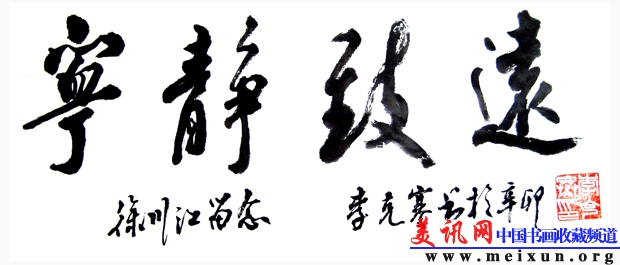 寧靜致遠
徐川江留念
李克寒书於辛卯
美讯网 中国书画收藏频道
www.meixun.org